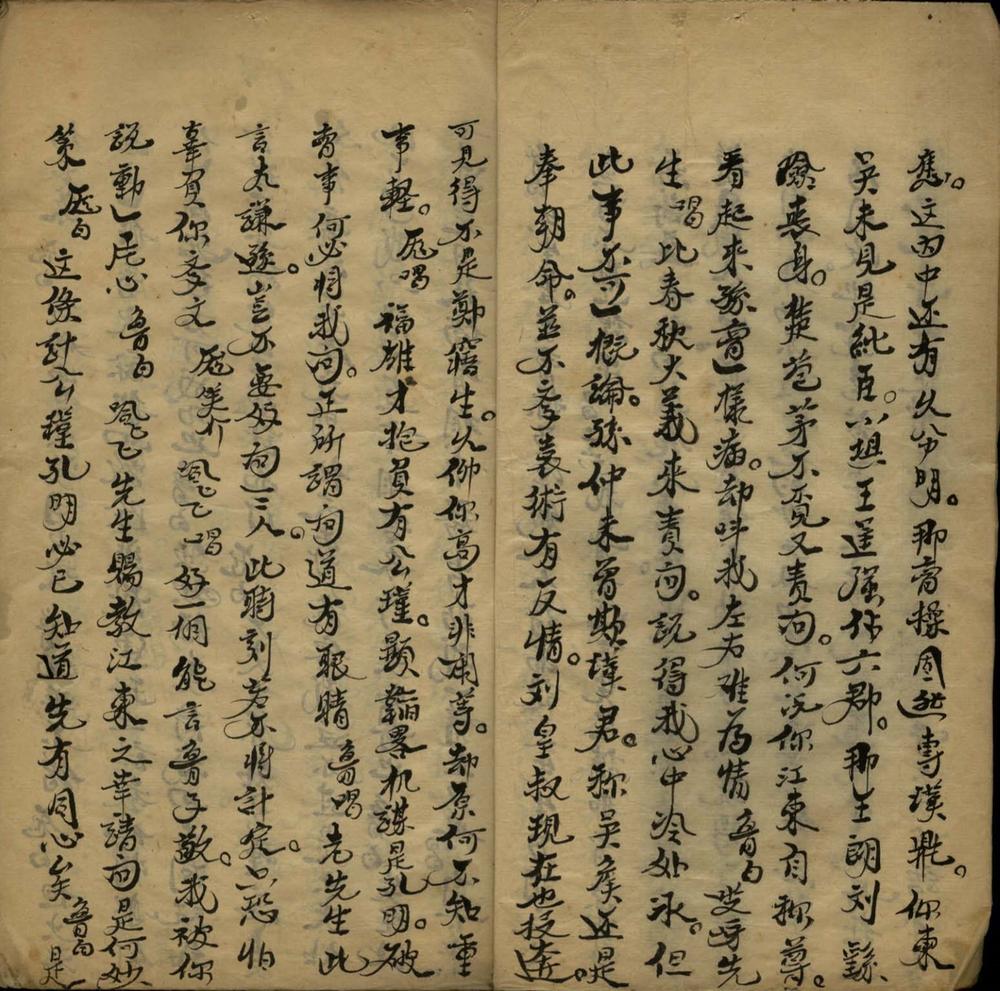 应。这四中还有久分明。那曹操固然专汉鼎。你东
吴未见是纯臣。小覇王逞强作六郡。那王朗刘繇
险丧身。楚苞茅不贡又责问。何况你江东自称尊。
看起来孙曹一樣病。却叫我左右难为情 魯白 先
生。唱 比春秋大義来责问。説得我心中冷处冰。但
此事不可一概論。孫仲未曾欺漢君。称吴矦还是
奉朝命。並不彦袁術有反情。刘皇叔现在也投奔。
可見得不是鄭寤生。久仰你高才非用等。却原何不知重
事輕。庞唱 福雄才抱負有公瑾。顯韜畧机謀是孔明。破
曹事何必将我问。正所謂问道有眼睛 魯唱 老先生此
言太謙遜。豈不要好问一三人。此時刻若不将計定。只恐怕
辜負你文 庞笑介 唱 好一個能言魯子敬。我被你
説動一庞心 魯白 先生賜教江東之幸請问是何妙
策 庞白 这條計公瑾孔明必已知道先有同心矣 魯白 是